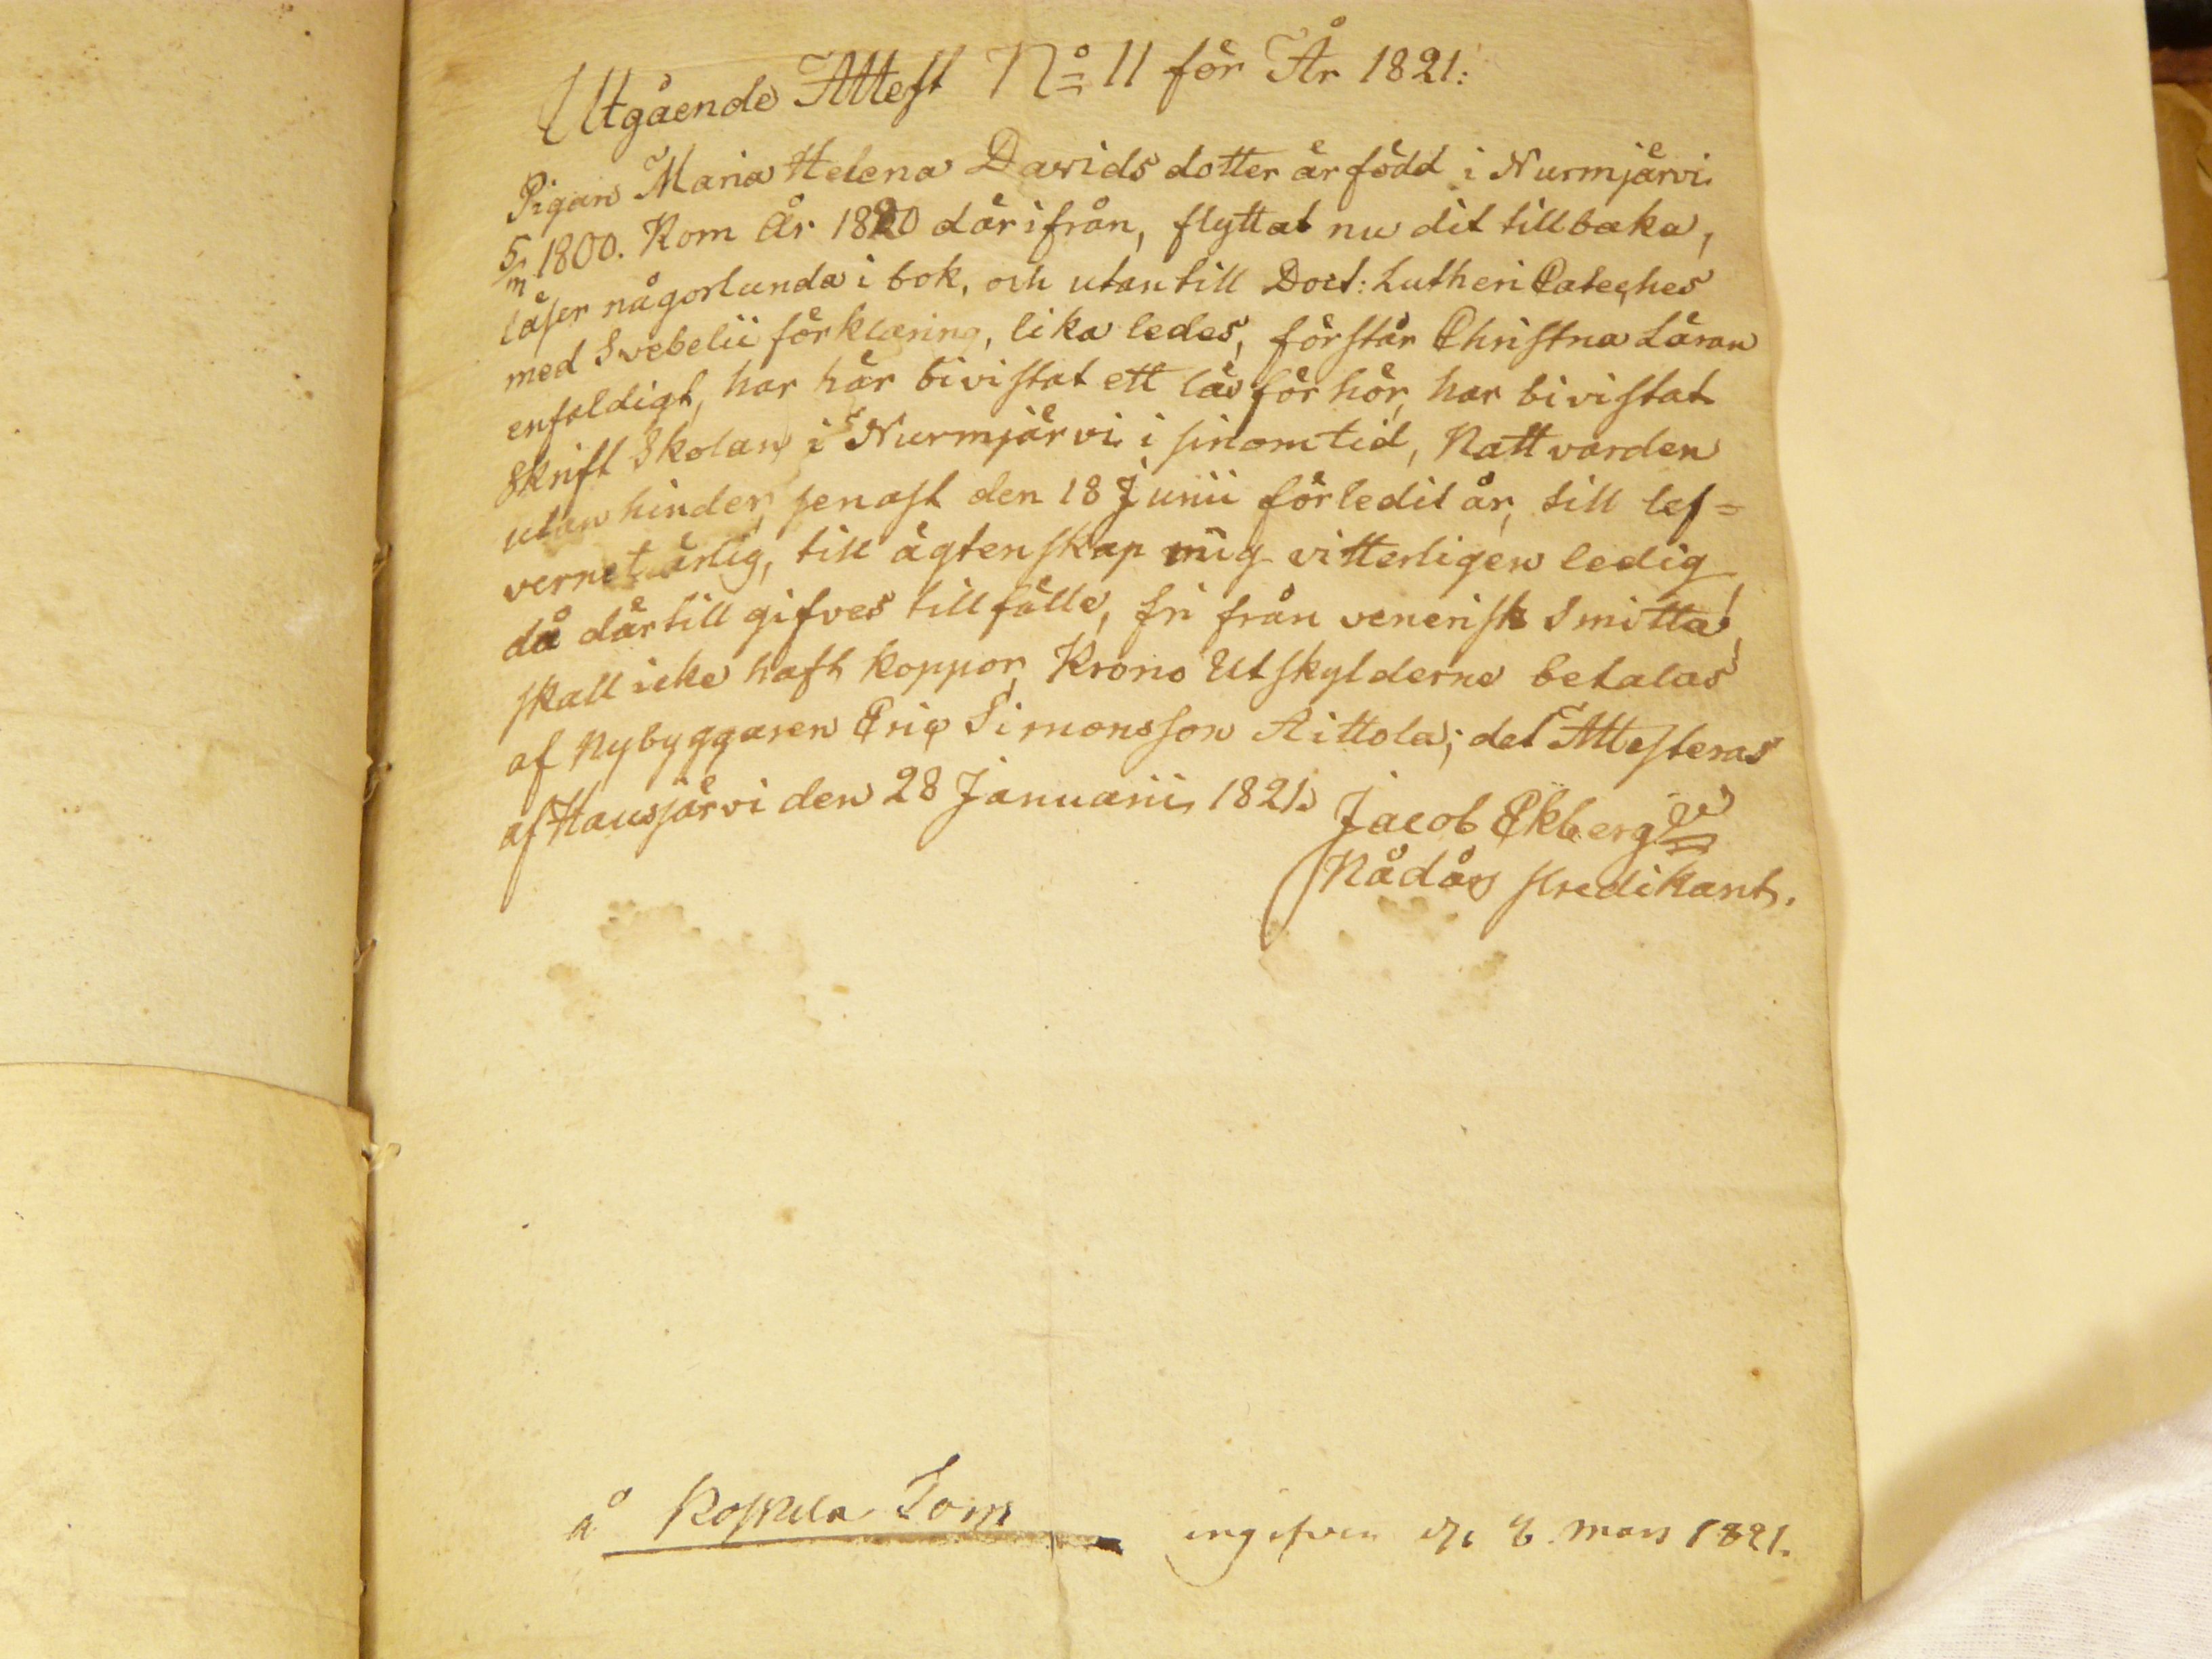 Utgående Attest No 11 för År 1821:
Pigan Maria Helena Davidsdotter är född i Nurmjärvi
5/m 1800. Kom År 1820 därifrån, flyttat nu dit tillbaka,
läser någorlunda i bok, och utantill Doct: Lutheri Cateches
med Svebelii förklaring, lika ledes, förstår Christna Läran
enfaldigt, har här bivistat ett läs förhör, har bivistat
Skrift Skolan i Nurmjärvi i sinom tid, Nattvarden
utan hinder, senast den 18 Junii förledit år, till lef=
vernet ärlig, till ägtenskap mig vitterligen ledig
då därtill gifves tillfälle, fri från venerisk Smitta,
skall icke haft koppor, Krono Utskylderne betalas
af Nybyggaren Eric Simonsson Aittola; det Attesteras
af Hausjärvi den 28 Januarii 1821.
Jacob Ekberg
Nådårs Predikant.
å Koskela Torp
ingifven d. 8 Mars 1821.